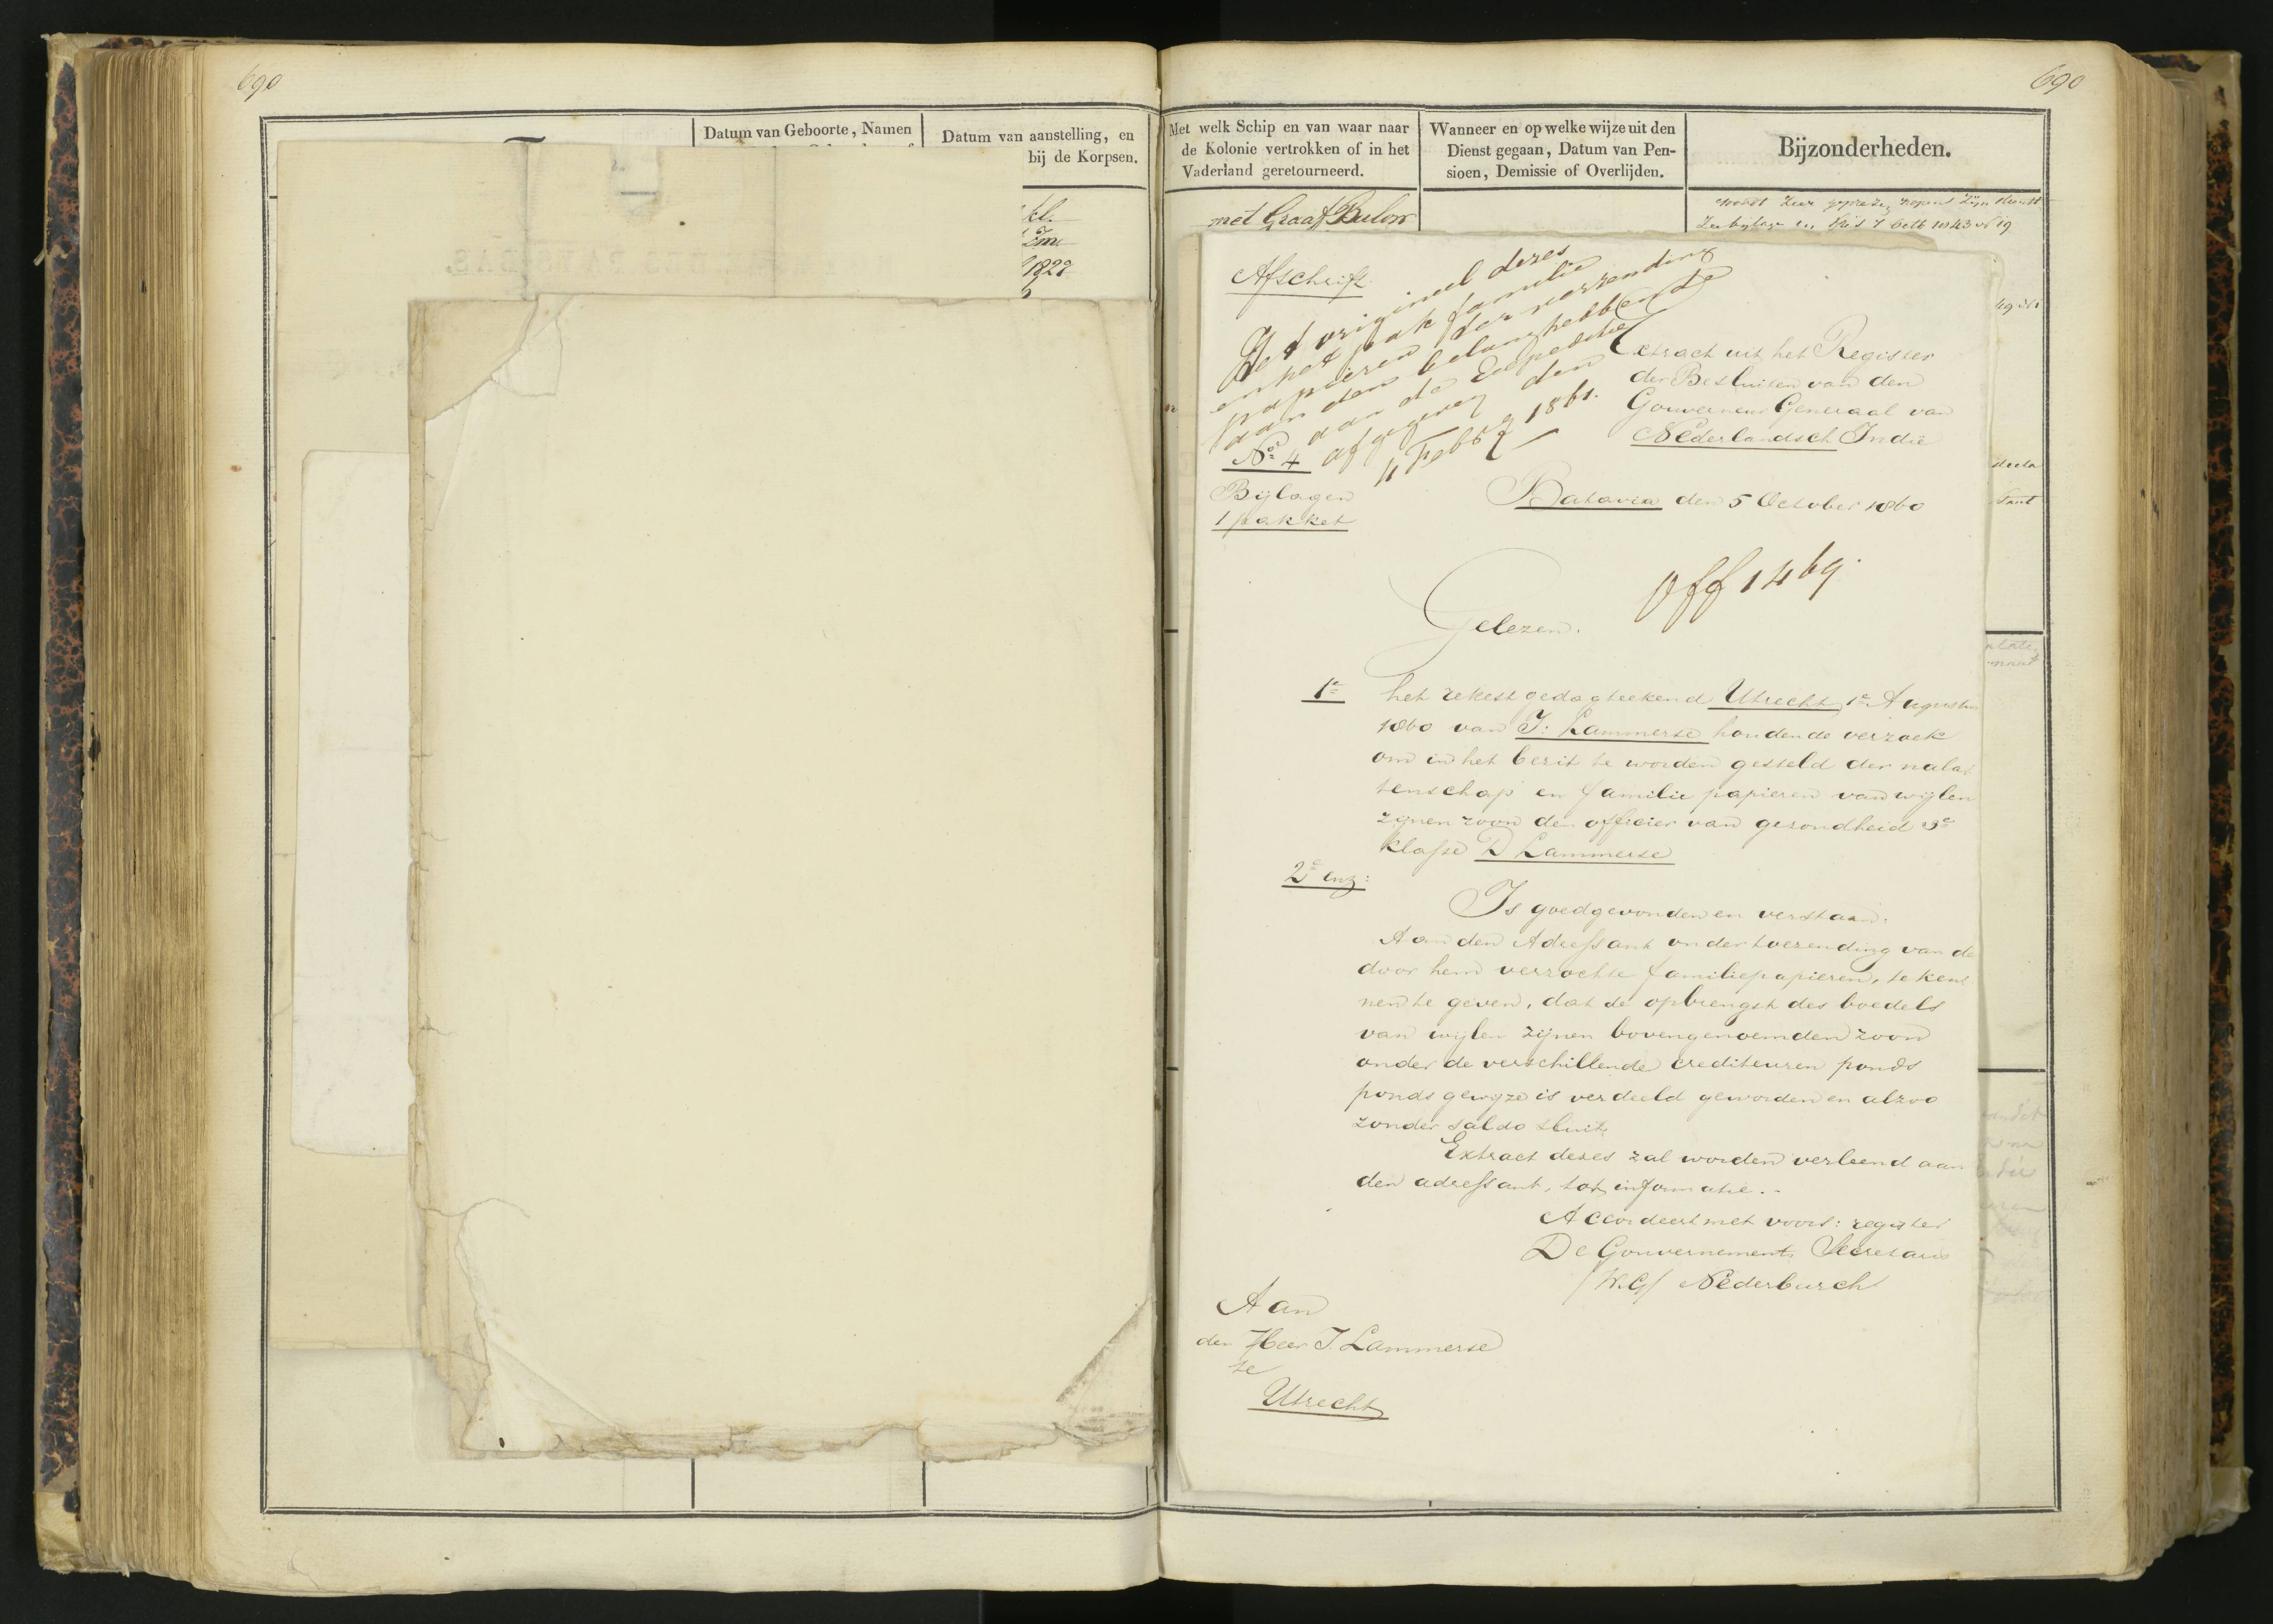 690
690
Datum van Geboorte, Namen
Datum van aanstelling, en
bij de Korpsen.
kl.
1827
Met welk Schip en van waar naar
de Kolonie vertrokken of in het
Vaderland geretourneerd.
Wanneer en op welke wijze uit den
Dienst gegaan, Datum van Pen-
sioen, Demissie of Overlijden.
Bijzonderheden.
met Graaf Bulow
wordt zeer geprezen wegens zijn dienst
Zie bijlage en 7 Octb 1843 No 19
Afschrift
Het origineel dezes
en het pak familie
papieren ter verzending
aan den belanghebbende
aan de Expeditie
afgegeven den
4 Febry 1861.
Extract uit het Register
der Besluiten van den
Gouverneur Generaal van
Nederlandsch Indie
No 4
Bijlagen
1 pakket
Batavia den 5 October 1860
Off 1469.
Gelezen.
1e het rekest gedagteekend Utrecht 1e Augustus
1860 van J: Lammerse houdende verzoek
om in het bezit te worden gesteld der nala-
tenschap en familie papieren van wijlen
zijnen zoon den officier van gezondheid 3e
klasse D Lammerse
2e enz:
Is goedgevonden en verstaan:
Aan den Adressant onder toezending van de
door hem verzochte familiepapieren, te ken-
nen te geven, dat de opbrengst des boedels
van wijlen zijnen bovengenoemden zoon
onder de verschillende crediteuren ponds
ponds gewijze is verdeeld geworden en alzoo
zonder saldo sluit.
Extract dezes zal worden verleend aan
den adressant, tot informatie.-
Accordeert met voors: register
De Gouvernements Secretaris
/W.G/ Nederburch
Aan
den Heer J. Lammerse
te
Utrecht